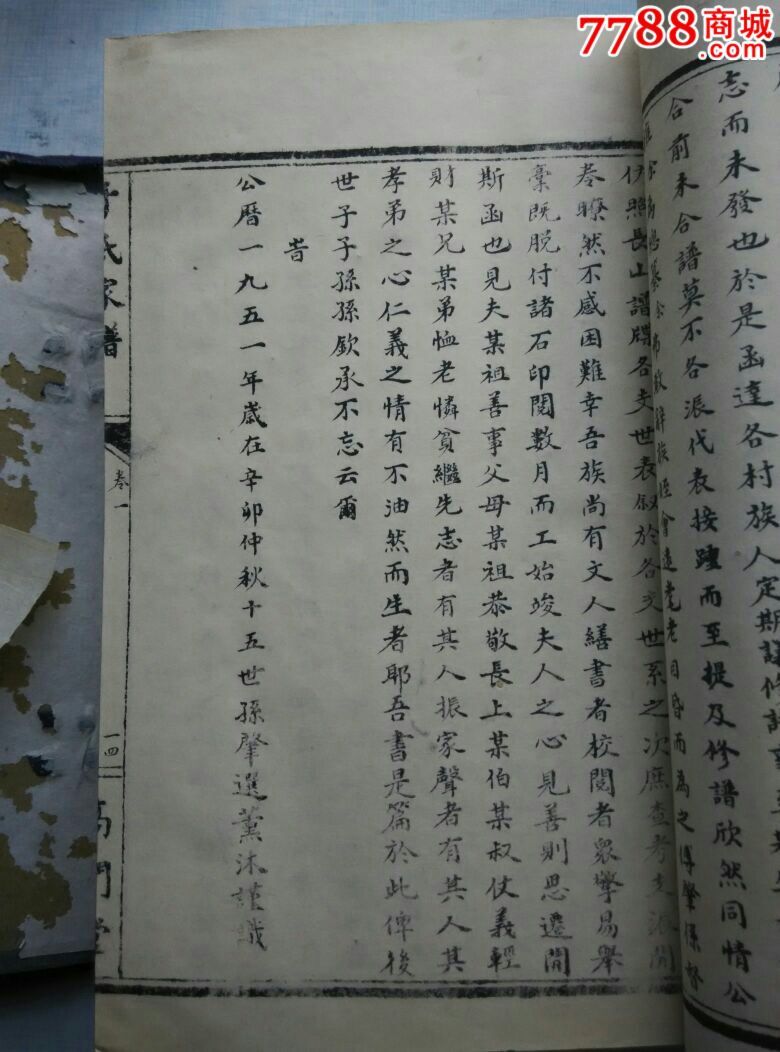 7788商城
.com
志而未發也於是函達各村族人定期
合前未合譜莫不各派代表接踵而至提及修譜欣然同情公
伊照長山譜牒各支世表叙於各支世系之次庶查考支派開
卷瞭然不感困難幸吾族尚有文人繕書者校閱者眾擎易舉
稾既脱付諸石印閱數月而工始竣夫人之心見善則思遷閱
斯函也見夫某祖善事父母某祖恭敬長上某伯某叔仗義輕
財某兄某弟恤老憐貧繼先志者有其人振家聲者有其人其
孝弟之心仁義之情有不油然而生者耶吾書是篇於此俾後
世子子孫孫欽承不忘云爾
旹
公曆一九五一年歲在辛卯仲秋十五世孫肇選薰沐謹識
氏家譜
卷一
一四